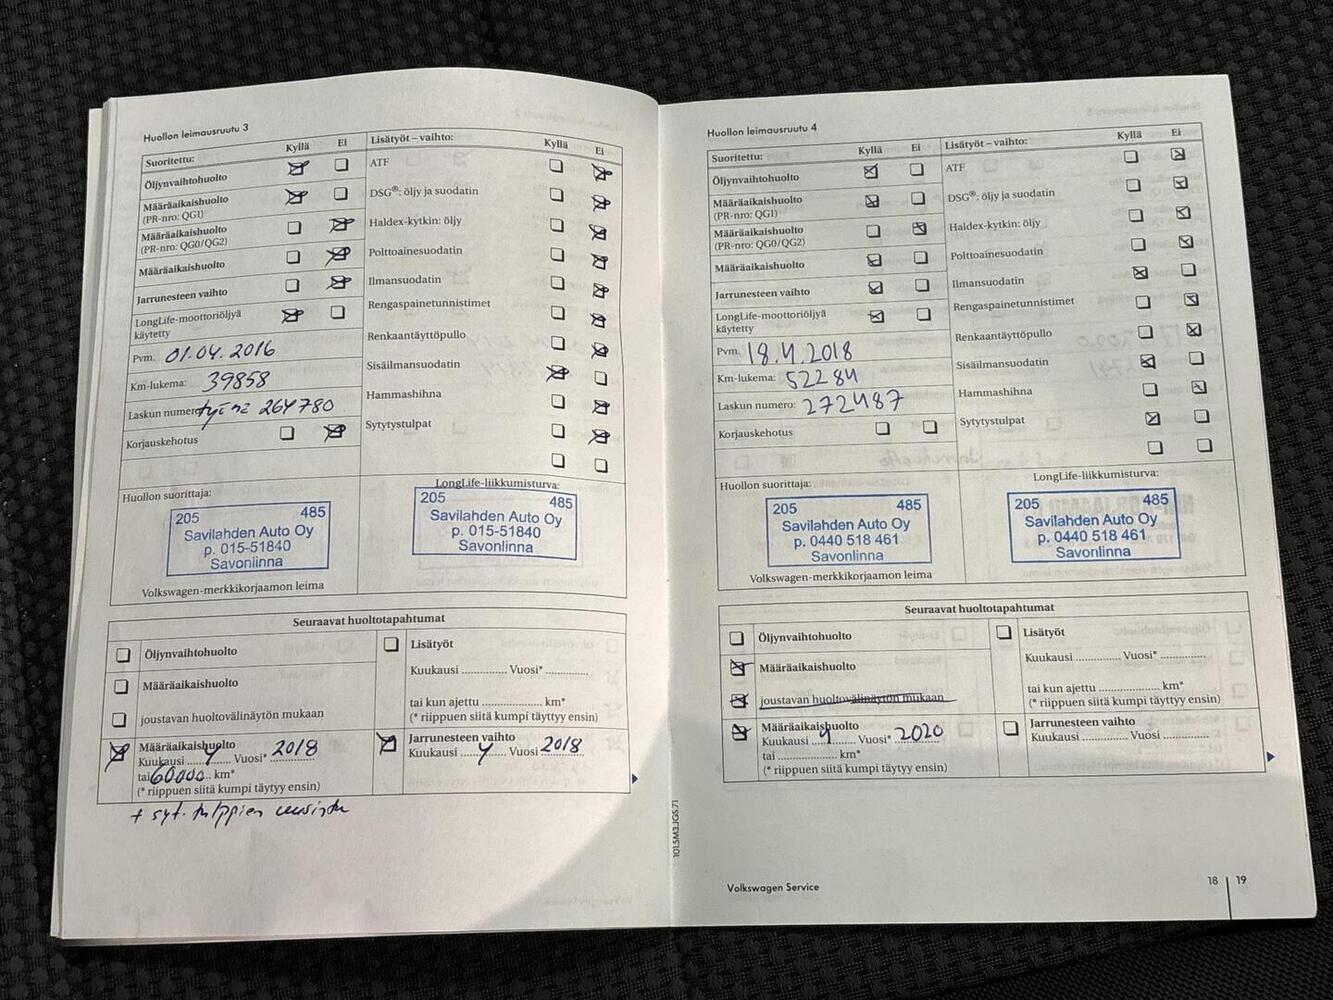 Huollon leimausruutu 3
Suoritettu: Kyllä Ei
Öljynvaihtohuolto
Määräaikaishuolto
(PR-nro: QG1)
Määräaikaishuolto
(PR-nro: QG0/QG2)
Määräaikaishuolto
Jarrunesteen vaihto
LongLife-moottoriöljyä
käytetty
Pvm. 01.04.2016
Km-lukema: 39858
Laskun numero 264780
Korjauskehotus
Lisätyöt – vaihto: Kyllä Ei
ATF
DSG®: öljy ja suodatin
Haldex-kytkin: öljy
Polttoainesuodatin
Ilmansuodatin
Rengaspainetunnistimet
Renkaantäyttöpullo
Sisäilmansuodatin
Hammashihna
Sytytystulpat
Huollon suorittaja:
205 485
Savilahden Auto Oy
p. 015-51840
Savonlinna
Volkswagen-merkkikorjaamon leima
LongLife-liikkumisturva:
205 485
Savilahden Auto Oy
p. 015-51840
Savonlinna
Seuraavat huoltotapahtumat
Öljynvaihtohuolto
Määräaikaishuolto
joustavan huoltovälinäytön mukaan
Määräaikaishuolto
Kuukausi 4 Vuosi* 2018
tai 60000 km*
(* riippuen siitä kumpi täyttyy ensin)
Lisätyöt
Kuukausi .............. Vuosi* ..............
tai kun ajettu .................... km*
(* riippuen siitä kumpi täyttyy ensin)
Jarrunesteen vaihto
Kuukausi 4 Vuosi 2018
+ syt. tulppien uusinta
Huollon leimausruutu 4
Suoritettu: Kyllä Ei
Öljynvaihtohuolto
Määräaikaishuolto
(PR-nro: QG1)
Määräaikaishuolto
(PR-nro: QG0/QG2)
Määräaikaishuolto
Jarrunesteen vaihto
LongLife-moottoriöljyä
käytetty
Pvm. 18.4.2018
Km-lukema: 52284
Laskun numero: 272487
Korjauskehotus
Lisätyöt – vaihto: Kyllä Ei
ATF
DSG®: öljy ja suodatin
Haldex-kytkin: öljy
Polttoainesuodatin
Ilmansuodatin
Rengaspainetunnistimet
Renkaantäyttöpullo
Sisäilmansuodatin
Hammashihna
Sytytystulpat
Huollon suorittaja:
205 485
Savilahden Auto Oy
p. 0440 518 461
Savonlinna
Volkswagen-merkkikorjaamon leima
LongLife-liikkumisturva:
205 485
Savilahden Auto Oy
p. 0440 518 461
Savonlinna
Seuraavat huoltotapahtumat
Öljynvaihtohuolto
Määräaikaishuolto
joustavan huoltovälinäytön mukaan
Määräaikaishuolto
Kuukausi 4 Vuosi* 2020
tai .................... km*
(* riippuen siitä kumpi täyttyy ensin)
Lisätyöt
Kuukausi .............. Vuosi* ..............
tai kun ajettu .................... km*
(* riippuen siitä kumpi täyttyy ensin)
Jarrunesteen vaihto
Kuukausi .............. Vuosi ..............
101.5M3.JGS.71
Volkswagen Service
18 | 19